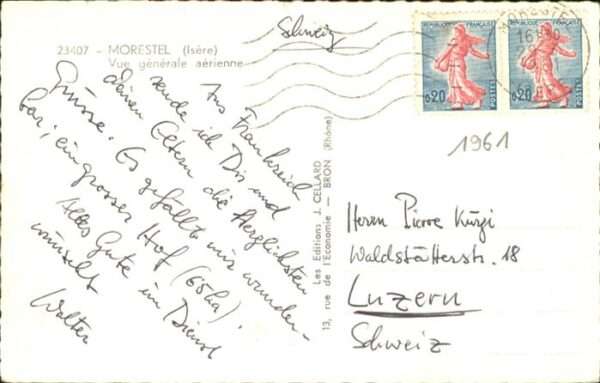 Schweiz
23407 - MORESTEL (Isère)
Vue générale aérienne
Aus Frankreich
sende ich Dir und
deinen Eltern die Herzlichsten
Grüsse. Es gefällt mir wunder-
bar; ein grosser Hof (65ha).
Alles Gute im Dienst
wünscht
Walter
Les Editions J. CELLARD
13, rue de l'Economie — BRON (Rhône)
REPUBLIQUE FRANÇAISE
0,20
POSTES
REPUBLIQUE FRANÇAISE
0,20
POSTES
1961
Herrn Pierre Kürzi
Waldstätterstr. 18
Luzern
Schweiz